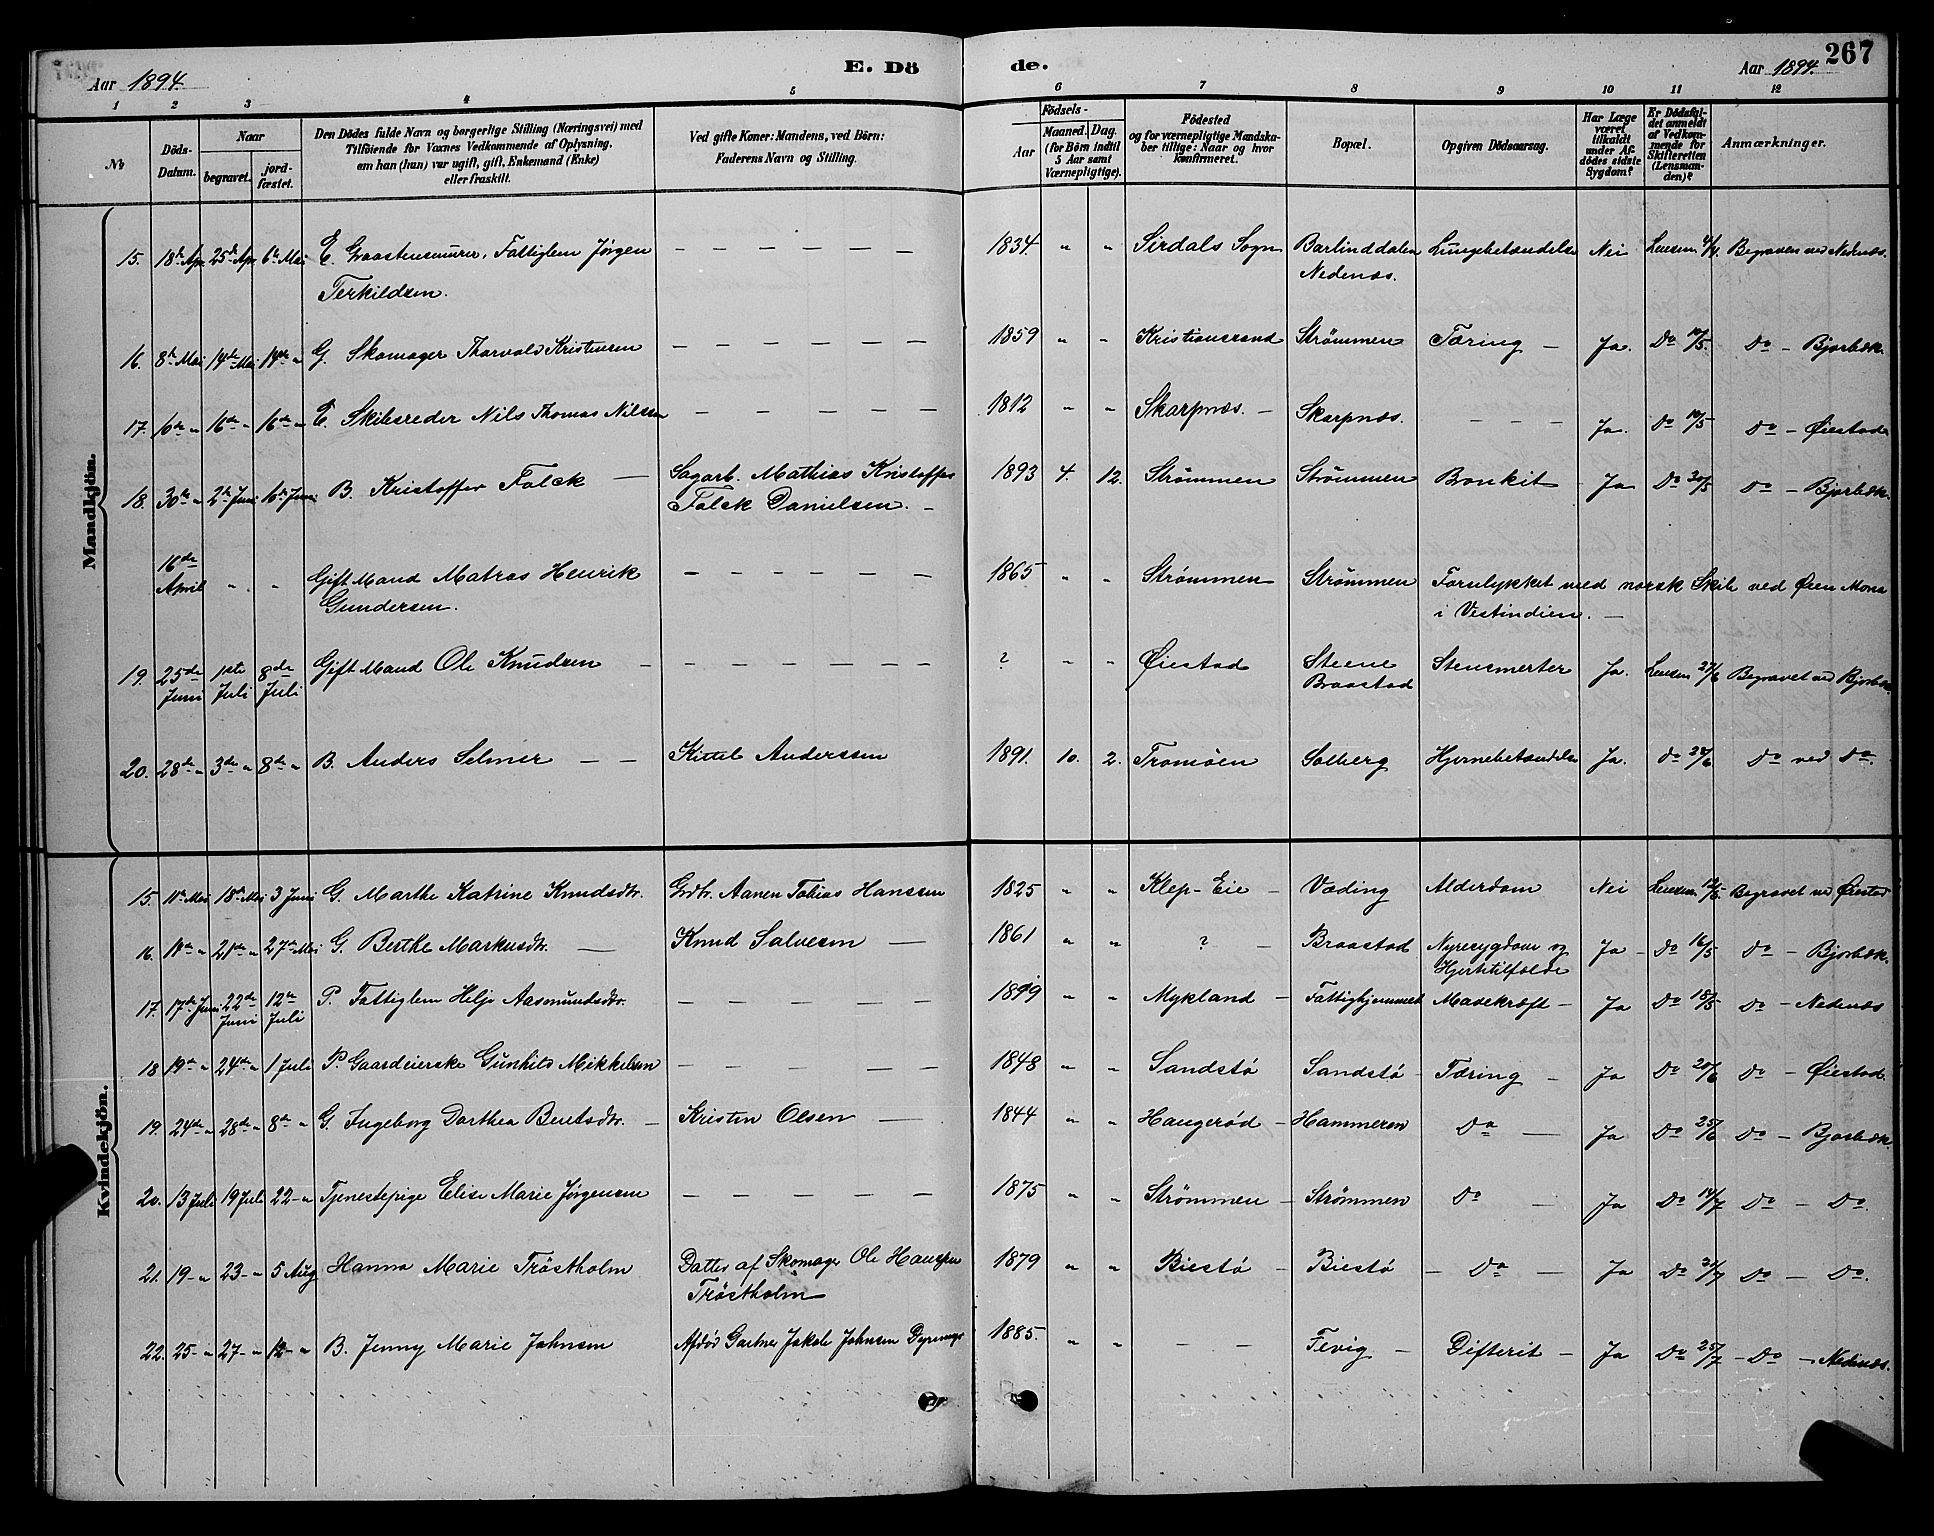 267
Aar 1894. E. Dö de. Aar 1894.
1 2 3 4 5 6 7 8 9 10 11 12
No
Döds-Datum.
Naar
begravet.
jord-fæstet.
Den Dödes fulde Navn og borgerlige Stilling (Næringsvei) med
Tilföiende for Voxnes Vedkommende af Oplysning,
om han (hun) var ugift, gift, Enkemand (Enke)
eller fraskilt.
Ved gifte Koner: Mandens, ved Börn:
Faderens Navn og Stilling.
Födsels-
Aar
Maaned. Dag.
(for Börn indtil
5 Aar samt
Værnepligtige).
Födested
og for værnepligtige Mandska-
ber tillige: Naar og hvor
konfirmeret.
Bopæl.
Opgiven Dödsaarsag.
Har Læge
været
tilkaldt
under Af-
dödes sidste
Sygdom?
Er Dödsfal-
det anmeldt
af Vedkom-
mende for
Skifteretten
(Lensman-
den)?
Anmærkninger.
Mandkjön.
15. 18de Apr. 25de Apr 6te Mai E. Graastensmurer, Fattiglem Jørgen — — — — — — 1834. " " Sirdals Sogn Barlinddalen Lungebetændelse Nei Lensm. Begraven ved Nedenæs.
Terkildsen. Nedenæs.
16. 8de Mai 14de Mai 14de " G. Skomager Thorvald Kristensen — — — — — — 1859 " " Kristianssand Strømmen Tæring — Ja. Do 10/5. Do — Bjorbæk.
17. 10de " 16de " 16de " E. Skibsreder Nils Thomas Nilssen — — — — — — 1812 " " Skarpnæs. — Skarpnæs. — — — Ja. Do 10/5 Do — Øiestad
18. 30te " 2de Juni 16de Juni B. Kristoffer Falck — Sagarb. Mathias Kristoffer 1893 4. 12. Strømmen Strømmen Bronkit Ja Do 30/5 Do — Bjorbæk.
Falck Danielsen. —
16de April " " Gift Mand Matros Henrik — — — — — — 1865 " " Strømmen Strømmen Forulykket med norsk Skib ved Øen Mona
Gundersen. i Vestindien. —
19. 25de Juni 1ste Juli 8de Juli Gift Mand Ole Knudsen — — — — — — — ? " " Øiestad Steene Stensmerter Ja. Lensm 27/6 Begravet ved Bjorbæk
Braastad
20. 28de " 3de " 8de " B. Anders Selmer — — Kittel Anderssen 1891. 10. 2. Tromøen Solberg Hjernebetændelse Ja. Do 28/6 Do ved Do.
Kvindekjön.
15. 11te Mai 18de Mai 3 Juni G. Marthe Katrine Knudsdtr. Grdbr. Aanen Tobias Hanssen 1825 " " Klep-Eie — Vading Alderdom Nei Lensm. 12/5. Begravet ved Øiestad
16. " 21de " 27de Mai G. Berthe Markusdtr. — Knud Salvesen — 1861 " " ? — Braastad Nyresygdom og Ja — Do 16/5 Do — Bjorbæk.
Hjertetilfælde
17. 17de Juni 22de Juni 12te Juli P. Fattiglem Helje Aasmundsdtr. — — — — — — " " Mykland — Fattighjemmet Mavekræft — Ja Do 18/5 Do — Nedenæs
18 19de " 24de " 1 Juli P. Gaardeierske Gunhild Mikkelsen — — — — — — 1848 " " Sandstø Sandstø — Tæring — Ja Do 20/6 Do — Øiestad.
19. 24de " 28de " 8de " G. Ingeborg Dorthea Berntsdtr. — Kristen Olsen — 1844 " " Haugerød — Hammeren Do — Ja Do 25/6 Do — Bjorbæk
20. 13 Juli 19 Juli 22 — " Tjenestepige Elise Marie Jørgensen — — — — — — 1875 " " Strømmen — Strømmen Do — Ja Do 14/7 Do — Do.
21. 19 — " 23 — " 5 Aug Hanna Marie Trøstholm Datter af Skomager Ole Hanssen 1879 " " Biestø — Biestø — Do — Ja Do 20/7 Do — Do.
Trøstholm
22. 25 — " 27 — " 12 — " B. Jenny Marie Johnsen Afdød Gartner Jakob Johnsen 1885. " " — — Fevig — Difterit — Ja Do 25/7 — Do — Nedenæs.